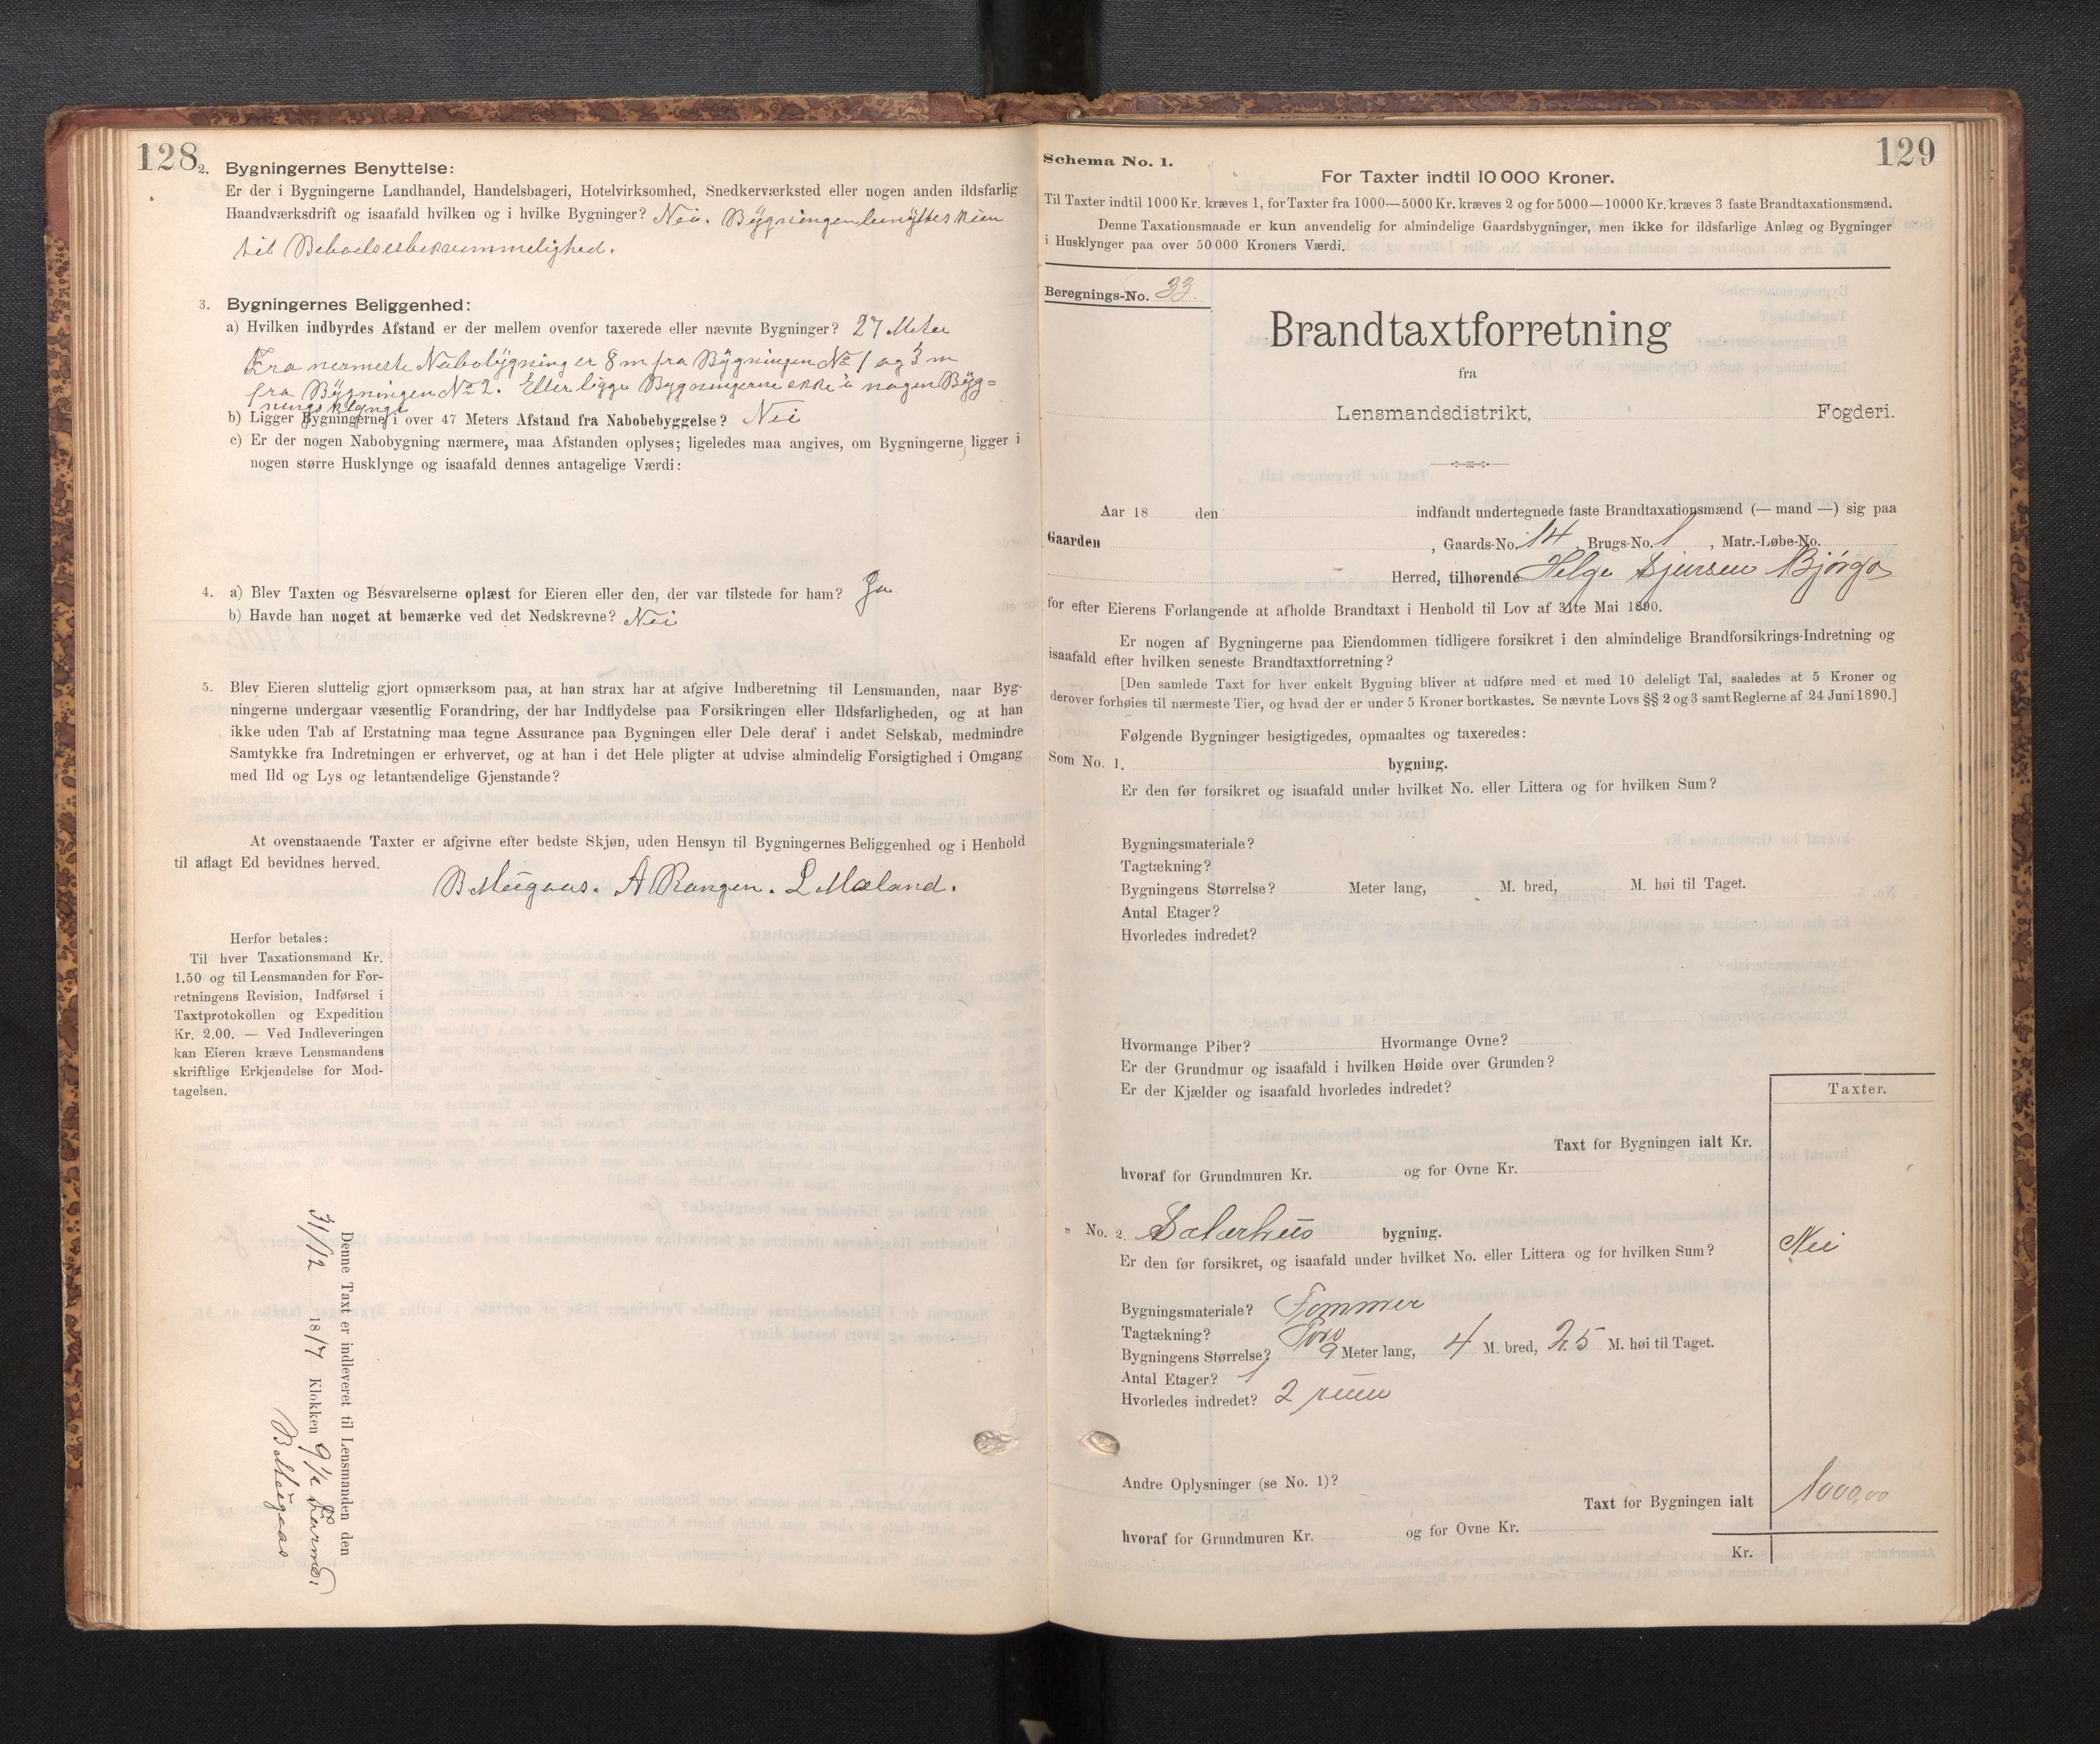 128
2. Bygningernes Benyttelse:
Er der i Bygningerne Landhandel, Handelsbageri, Hotelvirksomhed, Snedkerværksted eller nogen anden ildsfarlig
Haandværksdrift og isaafald hvilken og i hvilke Bygninger? Nei. Bygningen benyttes kun
til Beboelsesbekvemmelighed.
3. Bygningernes Beliggenhed:
a) Hvilken indbyrdes Afstand er der mellem ovenfor taxerede eller nævnte Bygninger? 27 Meter
Fra nermeste Nabobygning er 8 m fra Bygningen No 1 og 3 m
fra Bygningen No 2. Eller ligge Bygningerne ikke i nogen Byg=
nings klynge
b) Ligger Bygningerne i over 47 Meters Afstand fra Nabobebyggelse? Nei
c) Er der nogen Nabobygning nærmere, maa Afstanden oplyses; ligeledes maa angives, om Bygningerne ligger i
nogen større Husklynge og isaafald dennes antagelige Værdi:
4. a) Blev Taxten og Besvarelserne oplæst for Eieren eller den, der var tilstede for ham? Ja
b) Havde han noget at bemærke ved det Nedskrevne? Nei
5. Blev Eieren sluttelig gjort opmærksom paa, at han strax har at afgive Indberetning til Lensmanden, naar Byg-
ningerne undergaar væsentlig Forandring, der har Indflydelse paa Forsikringen eller Ildsfarligheden, og at han
ikke uden Tab af Erstatning maa tegne Assurance paa Bygningen eller Dele deraf i andet Selskab, medmindre
Samtykke fra Indretningen er erhvervet, og at han i det Hele pligter at udvise almindelig Forsigtighed i Omgang
med Ild og Lys og letantændelige Gjenstande?
At ovenstaaende Taxter er afgivne efter bedste Skjøn, uden Hensyn til Bygningernes Beliggenhed og i Henhold
til aflagt Ed bevidnes herved.
A Rongen. L Mæland.
Herfor betales:
Til hver Taxationsmand Kr.
1.50 og til Lensmanden for For-
retningens Revision, Indførsel i
Taxtprotokollen og Expedition
Kr. 2.00. — Ved Indleveringen
kan Eieren kræve Lensmandens
skriftlige Erkjendelse for Mod-
tagelsen.
Denne Taxt er indleveret til Lensmanden den
31/12 18 Klokken 9 1/2 Form.
129
Schema No. 1.
For Taxter indtil 10 000 Kroner.
Til Taxter indtil 1000 Kr. kræves 1, for Taxter fra 1000—5000 Kr. kræves 2 og for 5000—10000 Kr. kræves 3 faste Brandtaxationsmænd.
Denne Taxationsmaade er kun anvendelig for almindelige Gaardsbygninger, men ikke for ildsfarlige Anlæg og Bygninger
i Husklynger paa over 50 000 Kroners Værdi.
Beregnings-No. 33.
Brandtaxtforretning
fra
Lensmandsdistrikt, Fogderi.
Aar 18 den indfandt undertegnede faste Brandtaxationsmænd (— mand —) sig paa
Gaarden , Gaards-No. 14 Brugs-No. 1 , Matr.-Løbe-No.
Herred, tilhørende Helge Sjursen Bjørgo
for efter Eierens Forlangende at afholde Brandtaxt i Henhold til Lov af 31te Mai 1890.
Er nogen af Bygningerne paa Eiendommen tidligere forsikret i den almindelige Brandforsikrings-Indretning og
isaafald efter hvilken seneste Brandtaxtforretning?
[Den samlede Taxt for hver enkelt Bygning bliver at udføre med et med 10 deleligt Tal, saaledes at 5 Kroner og
derover forhøies til nærmeste Tier, og hvad der er under 5 Kroner bortkastes. Se nævnte Lovs §§ 2 og 3 samt Reglerne af 24 Juni 1890.]
Følgende Bygninger besigtigedes, opmaaltes og taxeredes:
Som No. 1. bygning.
Er den før forsikret og isaafald under hvilket No. eller Littera og for hvilken Sum?
Bygningsmateriale?
Tagtækning?
Bygningens Størrelse? Meter lang, M. bred, M. høi til Taget.
Antal Etager?
Hvorledes indredet?
Hvormange Piber? Hvormange Ovne?
Er der Grundmur og isaafald i hvilken Høide over Grunden?
Er der Kjælder og isaafald hvorledes indredet?
Taxter.
Taxt for Bygningen ialt Kr.
hvoraf for Grundmuren Kr. og for Ovne Kr.
" No. 2. bygning.
Er den før forsikret, og isaafald under hvilket No. eller Littera og for hvilken Sum? Nei
Bygningsmateriale? Tømmer
Tagtækning? Torv
Bygningens Størrelse? 9 Meter lang, 4 M. bred, 2.5 M. høi til Taget.
Antal Etager? 1
Hvorledes indredet? 2 rum
Andre Oplysninger (se No. 1)?
Taxt for Bygningen ialt 1000,00
hvoraf for Grundmuren Kr. og for Ovne Kr.
Kr.